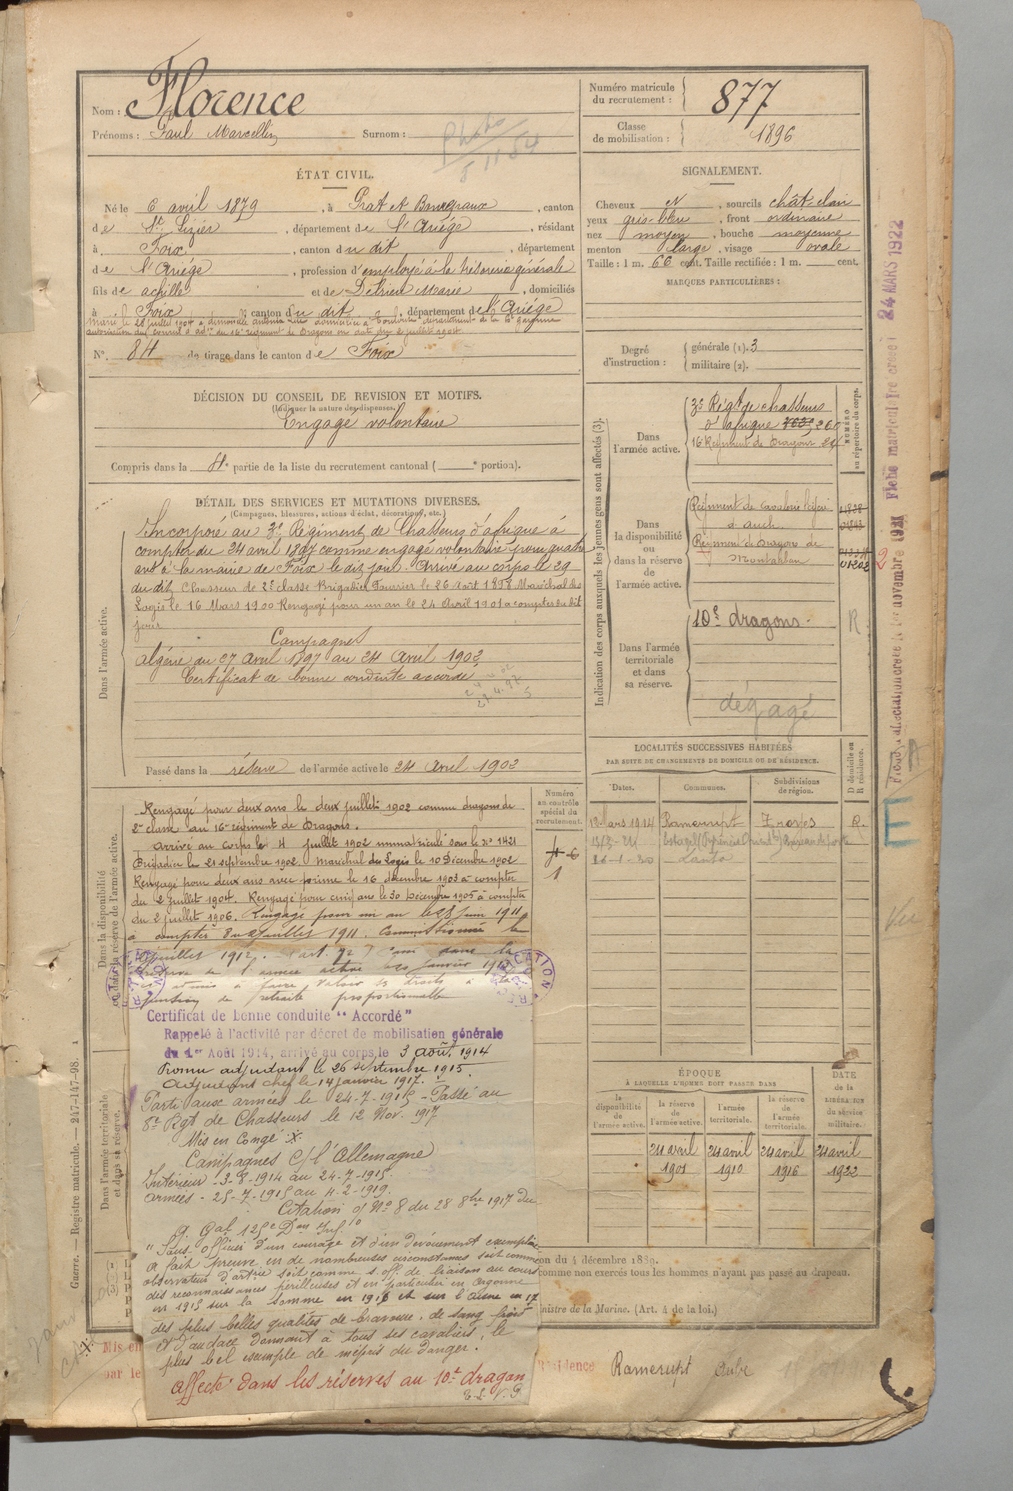 Nom : Florence
Prénoms : Paul Marcellin Surnom :
Numéro matricule du recrutement : 877
Classe de mobilisation : 1896
ÉTAT CIVIL.
Né le 6 avril 1879, à Prat et Bonrepaux, canton
de St Lizier, département de l'Ariége, résidant
à Foix, canton du dit, département
de l'Ariége, profession d'employé à la trésorerie générale
fils de achille et de Detrieu Marie, domiciliés
à Foix, canton du dit, département de l'Ariége
Marié le 28 juillet 1904 à
autorisation du Conseil d'adon du 16e régiment de Dragons en date du 2 juillet 1904
N° 84 de tirage dans le canton de Foix
SIGNALEMENT.
Cheveux N, sourcils chât clair
yeux gris-bleu, front ordinaire
nez moyen, bouche moyenne
menton large, visage ovale
Taille : 1 m. 66 cent. Taille rectifiée : 1 m. cent.
MARQUES PARTICULIÈRES :
Degré d'instruction : générale (1). 3
militaire (2).
DÉCISION DU CONSEIL DE REVISION ET MOTIFS.
(Indiquer la nature des dispenses.)
Engagé volontaire
Compris dans la 4e partie de la liste du recrutement cantonal ( e portion).
Indication des corps auxquels les jeunes gens sont affectés (3).
NUMÉRO au répertoire du corps.
Dans l'armée active.
3e Régt de chasseurs
d'afrique 260
16 Régiment de Dragons
Dans la disponibilité ou dans la réserve de l'armée active.
Régiment de Cavalerie légère
d'auch
Régiment de Dragons de
Montauban
Dans l'armée territoriale et dans sa réserve.
10e dragons. R
dégagé
DÉTAIL DES SERVICES ET MUTATIONS DIVERSES.
(Campagnes, blessures, actions d'éclat, décorations, etc.)
Dans l'armée active.
Incorporé au 3e Régiment de Chasseurs d'afrique à
compter du 24 avril 1897 comme engagé volontaire pour quatre
ans à la mairie de Foix le dit jour. Arrivé au corps le 29
du dit, Chasseur de 2e classe Brigadier Fourrier le 26 Août 1898 Maréchal des
Logis le 16 Mars 1900 Rengagé pour un an le 24 Avril 1901 à compter du dit
jour
Campagnes
algérie du 27 avril 1897 au 24 avril 1902
Certificat de bonne conduite accordé
Passé dans la réserve de l'armée active le 24 avril 1902
LOCALITÉS SUCCESSIVES HABITÉES
PAR SUITE DE CHANGEMENTS DE DOMICILE OU DE RÉSIDENCE.
Dates. Communes. Subdivisions de région. D domicile ou R résidence.
12 mars 1914 Ramerupt Troyes R.
Estagel (Pyrénées Orientales)
Numéro au contrôle spécial du recrutement.
1
Dans la disponibilité ou dans la réserve de l'armée active.
Rengagé pour deux ans le deux juillet 1902 comme dragons de
2e classe au 16e régiment de Dragons.
Arrivé au corps le 4 juillet 1902 immatriculé sous le n° 1421
Brigadier le 21 septembre 1902. Maréchal des Logis le 10 Décembre 1902
Rengagé pour deux ans avec prime le 16 décembre 1903 à compter
du 2 juillet 1904. Rengagé pour cinq ans le 30 Décembre 1905 à compter
du 2 juillet 1906. Rengagé pour un an le 28 juin 1911
à compter du 2 juillet 1911. Commissionné le
juillet 1912. (art. 72) Passé dans la
réserve de l'armée active le 20 janvier 19
admis à faire valoir ses droits à la
pension de retraite proportionnelle
Certificat de bonne conduite "Accordé"
Rappelé à l'activité par décret de mobilisation générale
du 1er Août 1914, arrivé au corps le 3 août 1914
Promu adjudant le 26 septembre 1915.
Adjudant chef le 14 janvier 1917.
Parti aux armées le 24-7-1915 - Passé au
8e Rgt de Chasseurs le 12 Nov. 1917
Mis en Congé
Campagnes c/ l'Allemagne
Intérieur - 3-8-1914 au 24-7-1915
armées - 25-7-1915 au 4-2-1919.
Citation o/ N° 8 du 28 8bre 1917 du
G. Gal 125e Don Infie
"Sous officier d'un courage et d'un dévouement exemplaire
a fait preuve en de nombreuses circonstances soit comme
observateur d'artie soit comme s. off. de liaison au cours
des reconnaissances périlleuses et en particulier en Argonne
en 1915 sur la Somme en 1916 et sur l'Aisne en 17
des plus belles qualités de bravoure, de sang froid
et d'audace donnant à tous ses cavaliers, le
plus bel exemple de mépris du danger.
affecté dans les réserves au 10e dragon
Dans l'armée territoriale et dans sa réserve.
ÉPOQUE
À LAQUELLE L'HOMME DOIT PASSER DANS
la disponibilité de l'armée active. la réserve de l'armée active. l'armée territoriale. la réserve de l'armée territoriale. DATE de la LIBÉRATION du service militaire.
24 avril 1901 24 avril 1910 24 avril 1916 24 avril 1922
on du 4 décembre 1889.
comme non exercés tous les hommes n'ayant pas passé au drapeau.
nistre de la Marine. (Art. 4 de la loi.)
Résidence Ramerupt Aube
Mis en
par le
Guerre. — Registre matricule. — 247-147-98.
24 MARS 1922
Fiche matriculaire créée
Vu